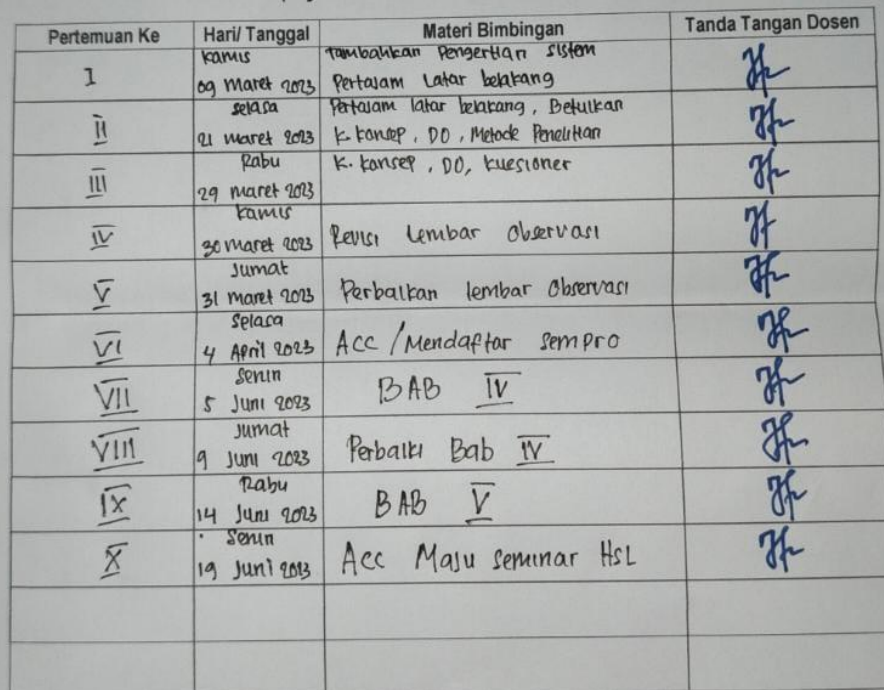 Pertemuan Ke Hari/ Tanggal Materi Bimbingan Tanda Tangan Dosen
I Kamis 09 Maret 2023 Tambahkan Pengertian sistem
Pertajam Latar belakang
II Selasa 21 Maret 2023 Pertajam latar belakang, Betulkan
K. Konsep, DO, Metode Penelitian
III Rabu 29 Maret 2023 K. Konsep, DO, Kuesioner
IV Kamis 30 Maret 2023 Revisi Lembar Observasi
V Jumat 31 Maret 2023 Perbaikan lembar Observasi
VI Selasa 4 April 2023 Acc / Mendaftar sempro
VII Senin 5 Juni 2023 BAB IV
VIII Jumat 9 Juni 2023 Perbaiki Bab IV
IX Rabu 14 Juni 2023 BAB V
X Senin 19 Juni 2023 Acc Maju seminar HSL